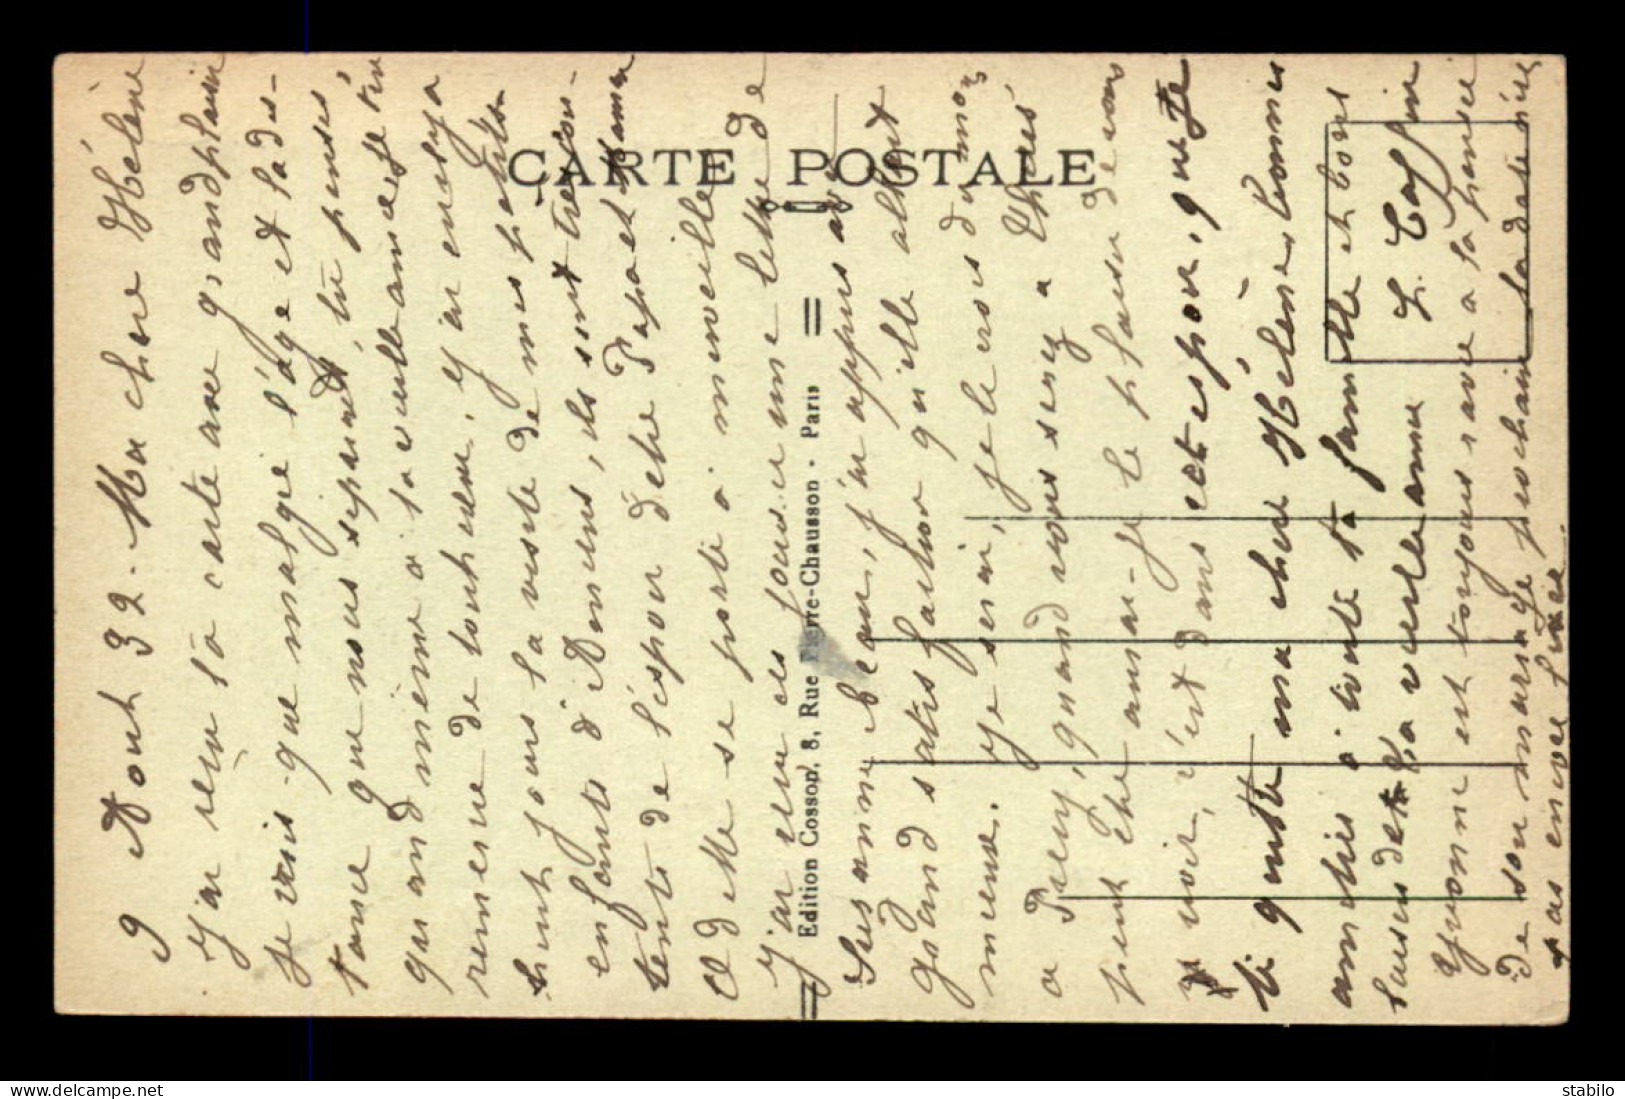 CARTE POSTALE
Edition Cosson, 8, Rue Pierre-Chausson · Paris
9 Aout 32. Ma chere Hélène
J'ai reçu ta carte avec grand plaisir
je vois que malgré l'age et la dis-
tance que nous separent, tu penses
quand même a ta vieille amie je t'en
remercie de tout coeur. J'ai en
tout jours la visite de mes petits
enfants d'Amiens, ils sont tres con-
tents de l'espoir d'etre Papa et Maman
Odette se porte a merveille
J'ai eu ces jours-ci une lettre de
Susanne Beau, j'm appris avec
grand satisfaction qu'elle allait
mieux. Je serai, je le crois du mois
a Precy, quand vous serez a Thury
peut etre aurai-je le plaisir de vous
voir, c'est dans cet espoir, que je
te quitte ma chere Hélène. Bonnes
amitiés a toute ta famille et bons
baisers de ta vieille amie L.
Yvonne est toujours avec a la pensée
de son mariage prochain la date n'est
pas encore fixée.
stabilo
www.delcampe.net